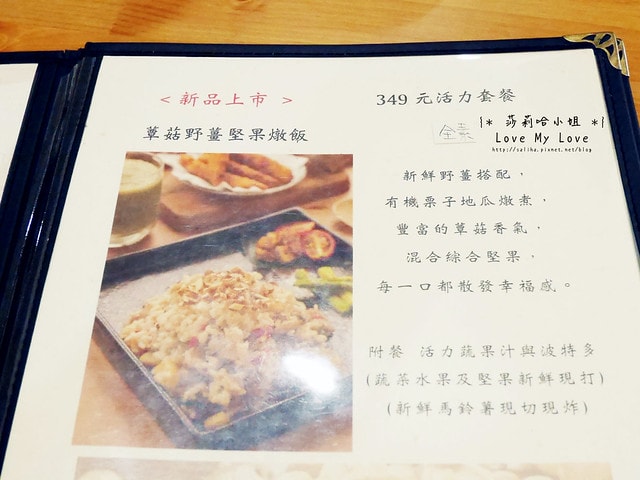 ＜ 新品上市 ＞
蕈菇野薑堅果燉飯
349 元活力套餐
全素
* 莎莉哈小姐 *
Love My Love
http://saliha.pixnet.net/blog
新鮮野薑搭配，
有機栗子地瓜燉煮，
豐富的蕈菇香氣，
混合綜合堅果，
每一口都散發幸福感。
附餐 活力蔬果汁與波特多
(蔬菜水果及堅果新鮮現打)
(新鮮馬鈴薯現切現炸)